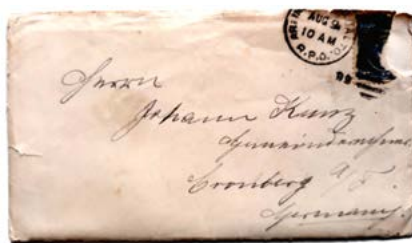 AUG 9
10 AM
R.P.O.
Herrn
Johann Kunz
Cronberg a/T.
Germany